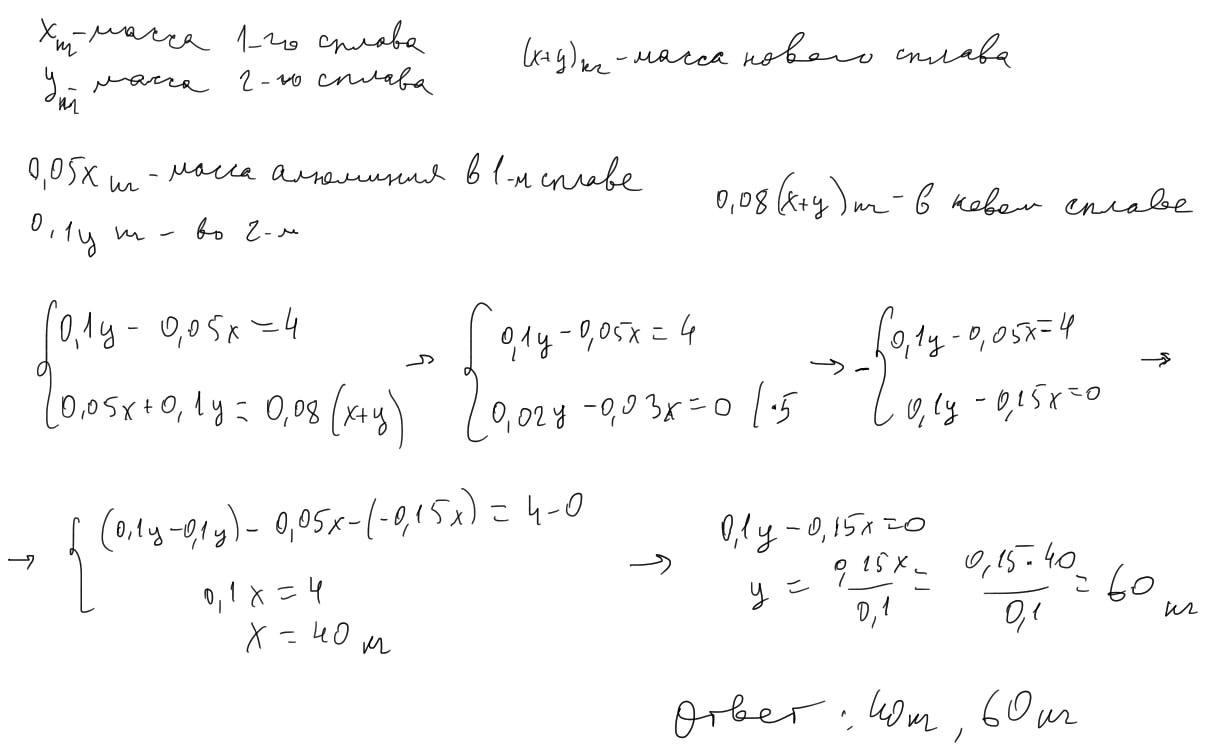 x кг - масса 1-го сплава
y кг - масса 2-го сплава
(x+y) кг - масса нового сплава
0,05x кг - масса алюминия в 1-м сплаве
0,1y кг - во 2-м
0,08(x+y) кг - в новом сплаве
{ 0,1y - 0,05x = 4 → { 0,1y - 0,05x = 4 → - { 0,1y - 0,05x = 4 →
0,05x + 0,1y = 0,08(x+y) 0,02y - 0,03x = 0 | ·5 0,1y - 0,15x = 0
→ { (0,1y - 0,1y) - 0,05x - (-0,15x) = 4 - 0
0,1x = 4
x = 40 кг
→ 0,1y - 0,15x = 0
y = 0,15x / 0,1 = 0,15·40 / 0,1 = 60 кг
Ответ: 40 кг, 60 кг